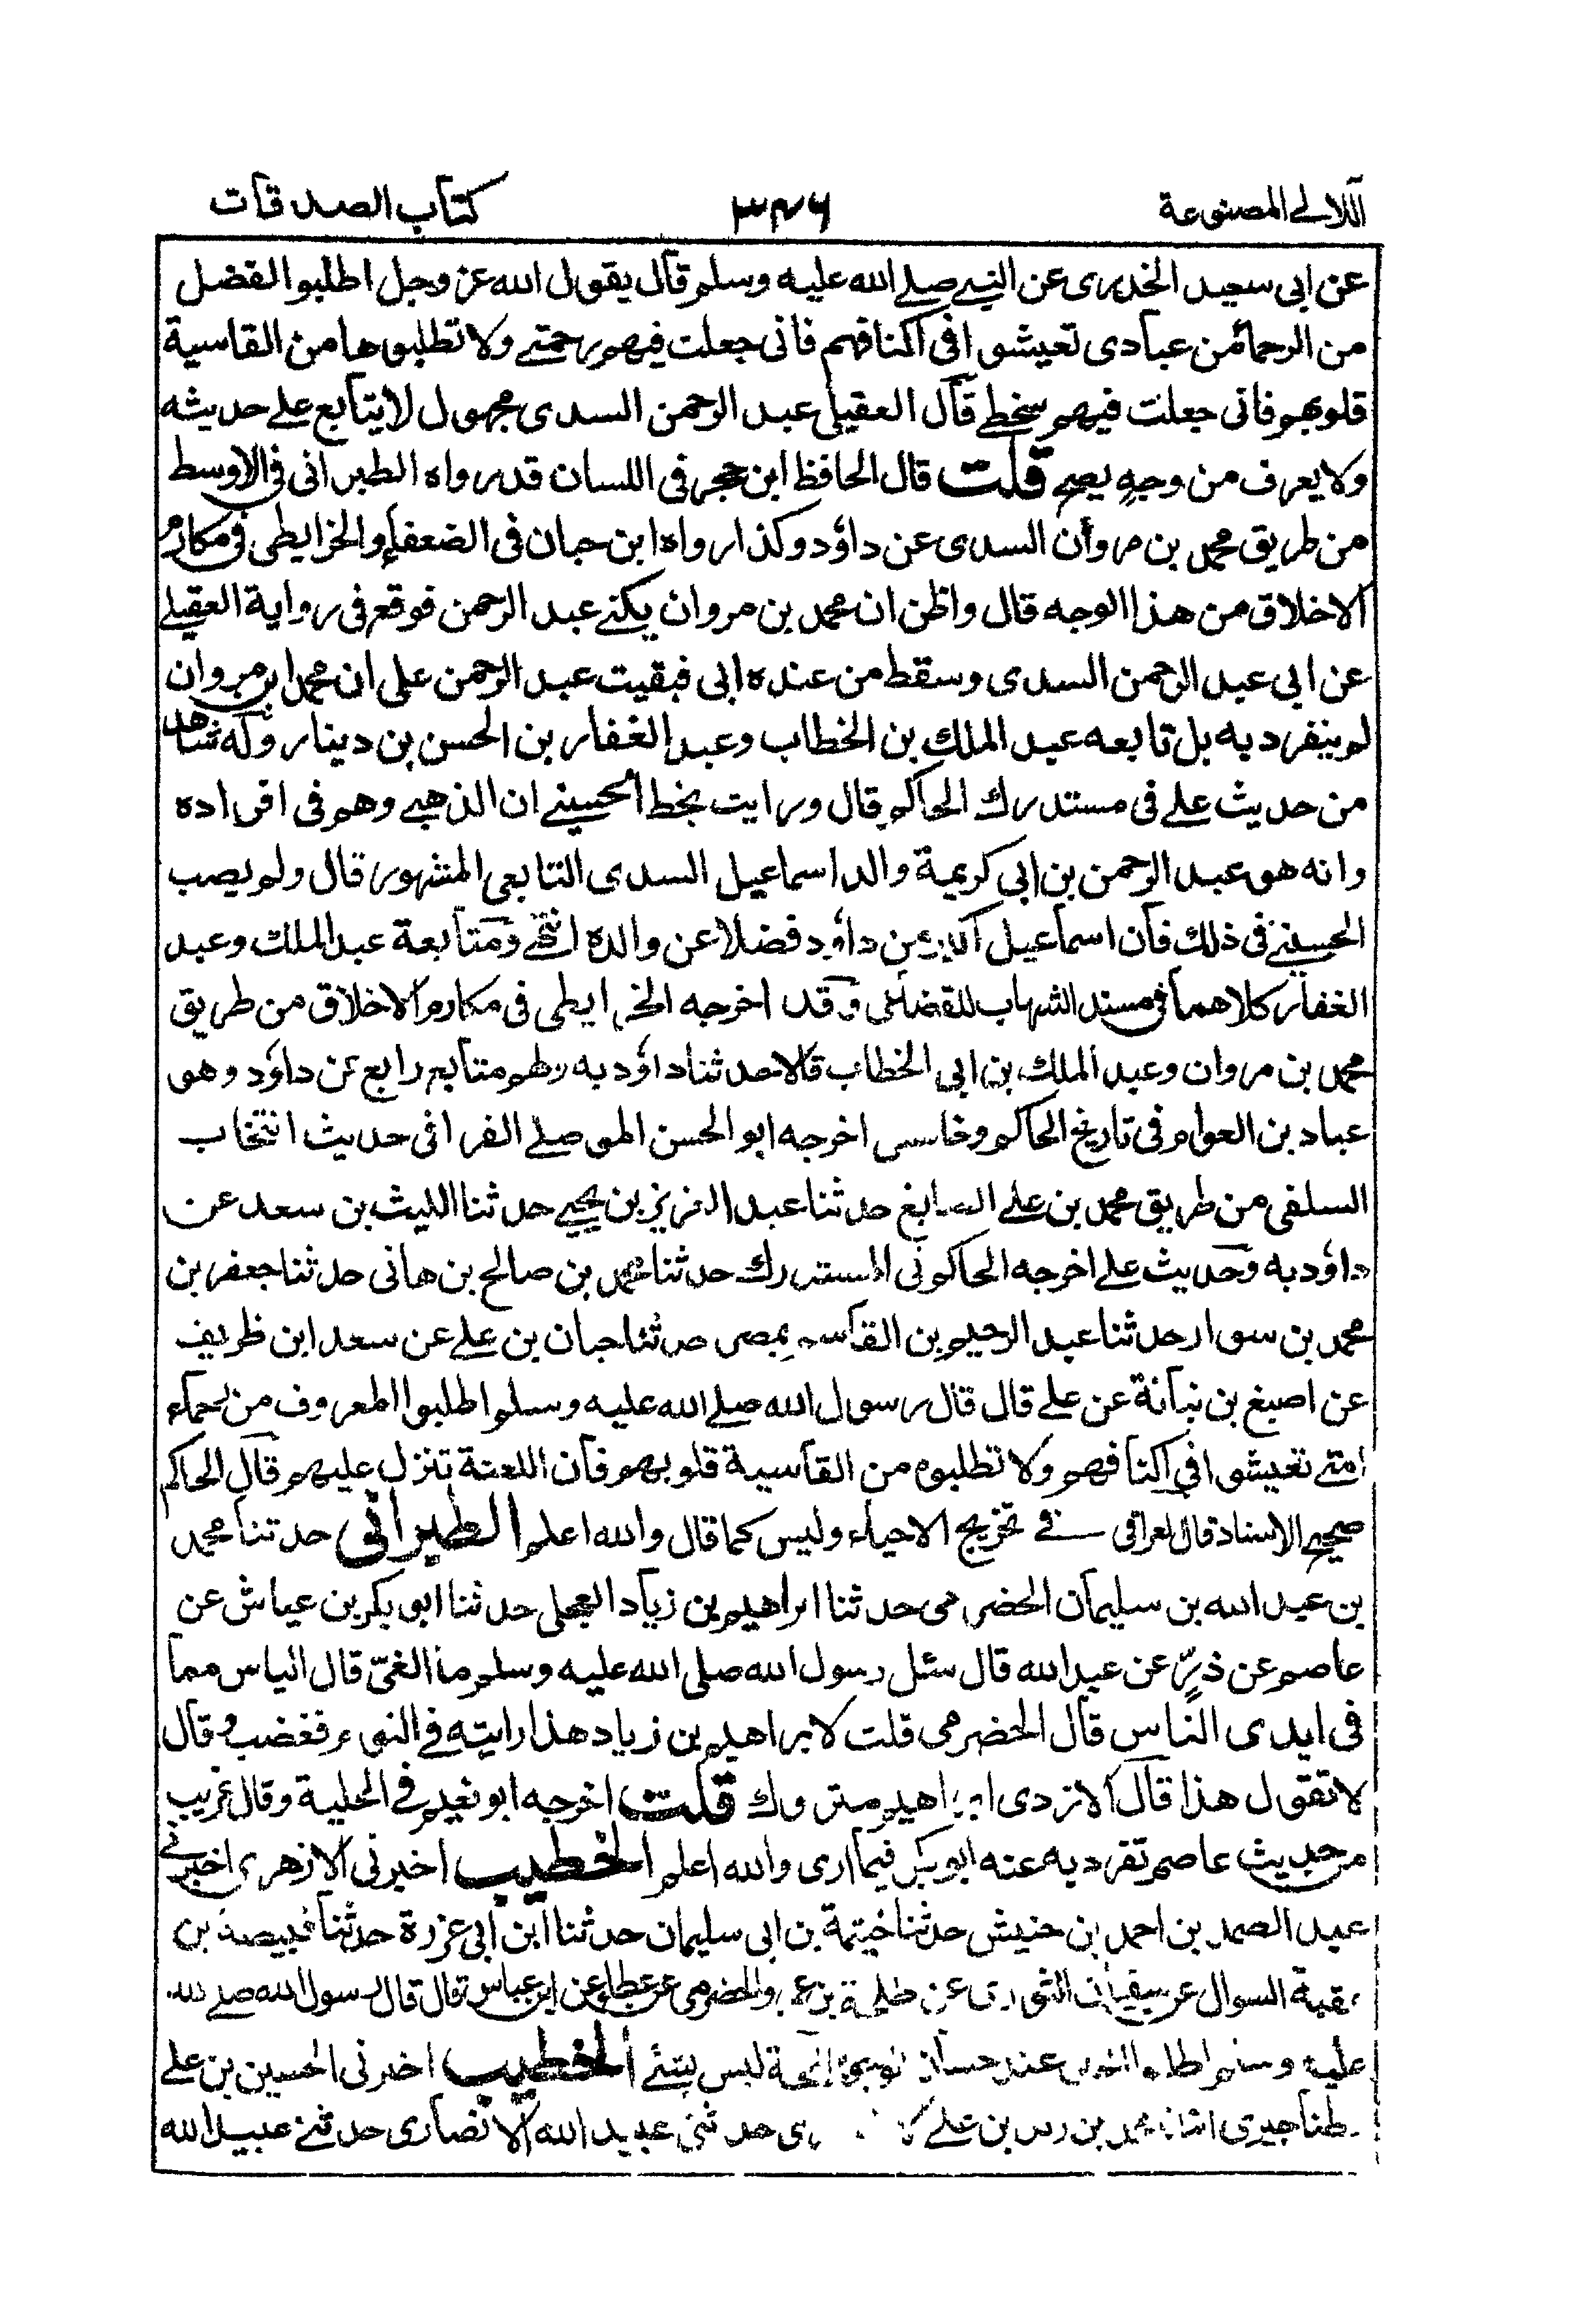 اللآلي المصنوعة ٣٤٦ كتاب الصدقات
عن ابى سعيد الخدرى عن النبى صلى الله عليه وسلم قال يقول الله عز وجل اطلبوا الفضل
من الرحماء من عبادى تعيشوا فى اكنافهم فانى جعلت فيهم رحمتى ولا تطلبوها من القاسية
قلوبهم فانى جعلت فيهم سخطى قال العقيلى عبد الرحمن السدى مجهول لا يتابع على حديثه
ولا يعرف من وجه يصح قلت قال الحافظ ابن حجر فى اللسان قد رواه الطبرانى فى الاوسط
من طريق محمد بن مروان السدى عن داؤد وكذا رواه ابن حبان فى الضعفاء والخرايطى فى مكارم
الاخلاق من هذا الوجه قال واظن ان محمد بن مروان يكنى عبد الرحمن فوقع فى رواية العقيلى
عن ابى عبد الرحمن السدى وسقط من عنده ابى فبقيت عبد الرحمن على ان محمد ابن مروان
لم ينفرد به بل تابعه عبد الملك بن الخطاب وعبد الغفار بن الحسن بن دينار وله شاهد
من حديث على فى مستدرك الحاكم قال ورايت بخط الحسينى ان الذهبى وهم فى افراده
وانه هو عبد الرحمن بن ابى كريمة والد اسماعيل السدى التابعى المشهور قال ولم يصب
الحسينى فى ذلك فان اسماعيل اكبر من داؤد فضلا عن والده انتهى ومتابعة عبد الملك وعبد
الغفار كلاهما فى مسند الشهاب للقضاعى وقد اخرجه الخرايطى فى مكارم الاخلاق من طريق
محمد بن مروان وعبد الملك بن ابى الخطاب قالا حدثنا داؤد به ولهم متابع رابع عن داؤد وهو
عباد بن العوام فى تاريخ الحاكم وخامس اخرجه ابو الحسن الموصلى الفرا فى حديث انتخاب
السلفى من طريق محمد بن على الصايغ حدثنا عبد العزيز بن يحيى حدثنا الليث بن سعد عن
داؤد به وحديث على اخرجه الحاكم فى المستدرك حدثنا محمد بن صالح بن هانى حدثنا جعفر بن
محمد بن سوار حدثنا عبد الرحيم بن القاسم بمصر حدثنا حبان بن على عن سعد ابن ظريف
عن اصبغ بن نباتة عن على قال قال رسول الله صلى الله عليه وسلم اطلبوا المعروف من رحماء
امتى تعيشوا فى اكنافهم ولا تطلبوه من القاسية قلوبهم فان اللعنة تنزل عليهم قال الحاكم
صحيح الاسناد قال العراقى فى تخريج الاحياء وليس كما قال والله اعلم الطبرانى حدثنا محمد
بن عبد الله بن سليمان الحضرمى حدثنا ابراهيم بن زياد العجلى حدثنا ابو بكر بن عياش عن
عاصم عن ذرّ عن عبد الله قال سئل رسول الله صلى الله عليه وسلم ما الغنى قال الياس مما
فى ايدى الناس قال الحضرمى قلت لابراهيم بن زياد هذا رايته فى النوم فغضب وقال
لا تقول هذا قال الازدى ابراهيم متروك قلت اخرجه ابو نعيم فى الحلية وقال غريب
من حديث عاصم تفرد به عنه ابو بكر فيما ارى والله اعلم الخطيب اخبرنى الازهرى اخبرنى
عبد الصمد بن احمد بن خنيش حدثنا خيثمة بن ابى سليمان حدثنا ابن ابى غرزة حدثنا قبيصة بن
عقبة السوال عن سفيان الثورى عن طلحة بن عمرو الحضرمى عن عطاء عن ابن عباس قال قال رسول الله صلى الله
عليه وسلم اطلبوا الخير عند حسان الوجوه طلحة ليس بشئ الخطيب اخبرنى الحسين بن على
الطناجيرى محمد بن بن على حدثنى عبيد الله الانصارى حدثنى عبيد الله